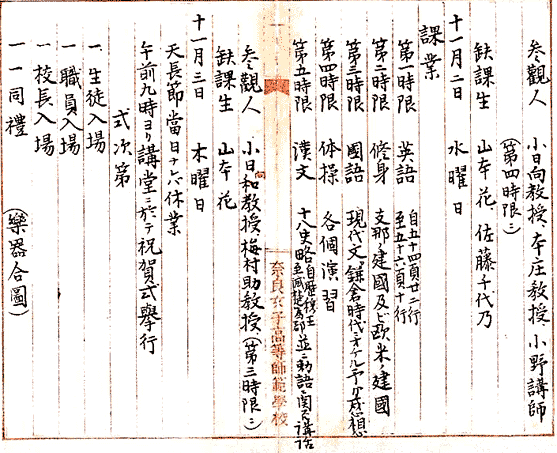 参観人　小日向教授、本庄教授、小野講師
（第四時限ニ）
缺課生　山本花、佐藤千代乃
十一月二日　水曜日
課業
第一時限　英語　自五十四頁廿二行
至五十六頁十行
第二時限　修身　支那ノ建國及ビ欧米ノ建國
第三時限　國語　現代文、鎌倉時代ニオケル予ノ感想
第四時限　体操　各個演習
第五時限　漢文　十八史略 並ニ動詞ニ関スル講話
奈良女子高等師範學校
参観人　小日向教授、梅村助教授、（第三時限ニ）
缺課生　山本花
十一月三日　木曜日
天長節當日ナレバ休業
午前九時ヨリ講堂ニ於テ祝賀式擧行
式次第
一、生徒入場
一、職員入場
一、校長入場
一、一同禮　（樂器合圖）